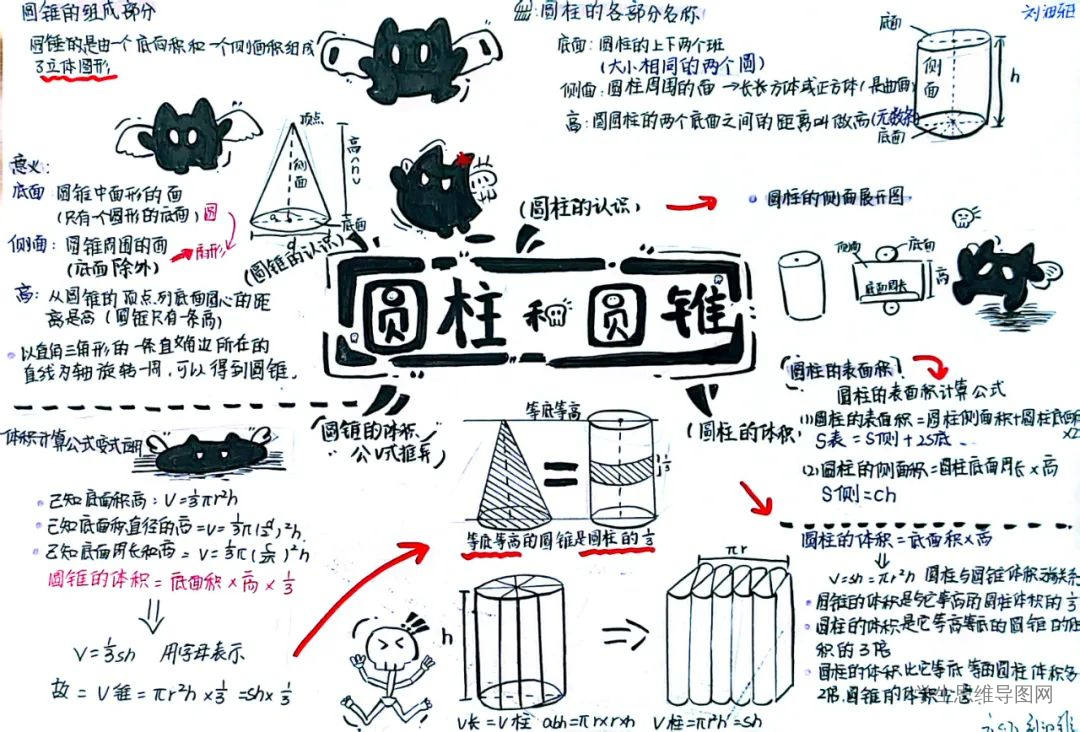 圆锥的组成部分
圆锥的是由一个底面积和一个侧面积组成
立体图形
顶点
高(h)
侧面
底面
d
意义:
底面:圆锥中面形的面
(只有一个圆形的底面)圆
侧面:圆锥周围的面
(底面除外)
扇形
(圆锥的认识)
高:从圆锥的顶点到底面圆心的距
离是高(圆锥只有一条高)
以直角三角形的一条直角边所在的
直线为轴旋转一周,可以得到圆锥。
圆柱的各部分名称
底面:圆柱的上下两个班
(大小相同的两个圆)
侧面:圆柱周围的面→长长方体或正方体(是曲面)
高:圆圆柱的两个底面之间的距离叫做高(无数条
底面
侧面
h
底面
(圆柱的认识)
圆柱的侧面展开图
侧面
底面
底面周长
高
圆柱和圆锥
(圆柱的表面积)
圆柱的表面积计算公式
(1)圆柱的表面积=圆柱侧面积+圆柱底面积
×2
S表=S侧+2S底
(2)圆柱的侧面积=圆柱底面周长×高
S侧=ch
体积计算公式
已知底面积高:V=⅓πr²h
已知底面积直径的高=V=⅓π(d/2)²h
已知底面周长和高=V=⅓π(c/2π)²h
圆锥的体积=底面积×高×⅓
V=⅓sh 用字母表示
故=V锥=πr²h×⅓=sh×⅓
圆锥的体积
公V式推导
等底等高
=
⅓
等底等高的圆锥是圆柱的⅓
(圆柱的体积)
h
πr
V长=V柱 abh=πr×r×h
V柱=πr²h=sh
圆柱的体积=底面积×高
V=sh=πr²h 圆柱与圆锥体积关系
圆锥的体积是与它等高的圆柱体积的⅓
圆柱的体积是它等高等底的圆锥的体
积的3倍
圆柱的体积比它等底等的圆柱体积多
2倍.圆锥的体积
思维导图网